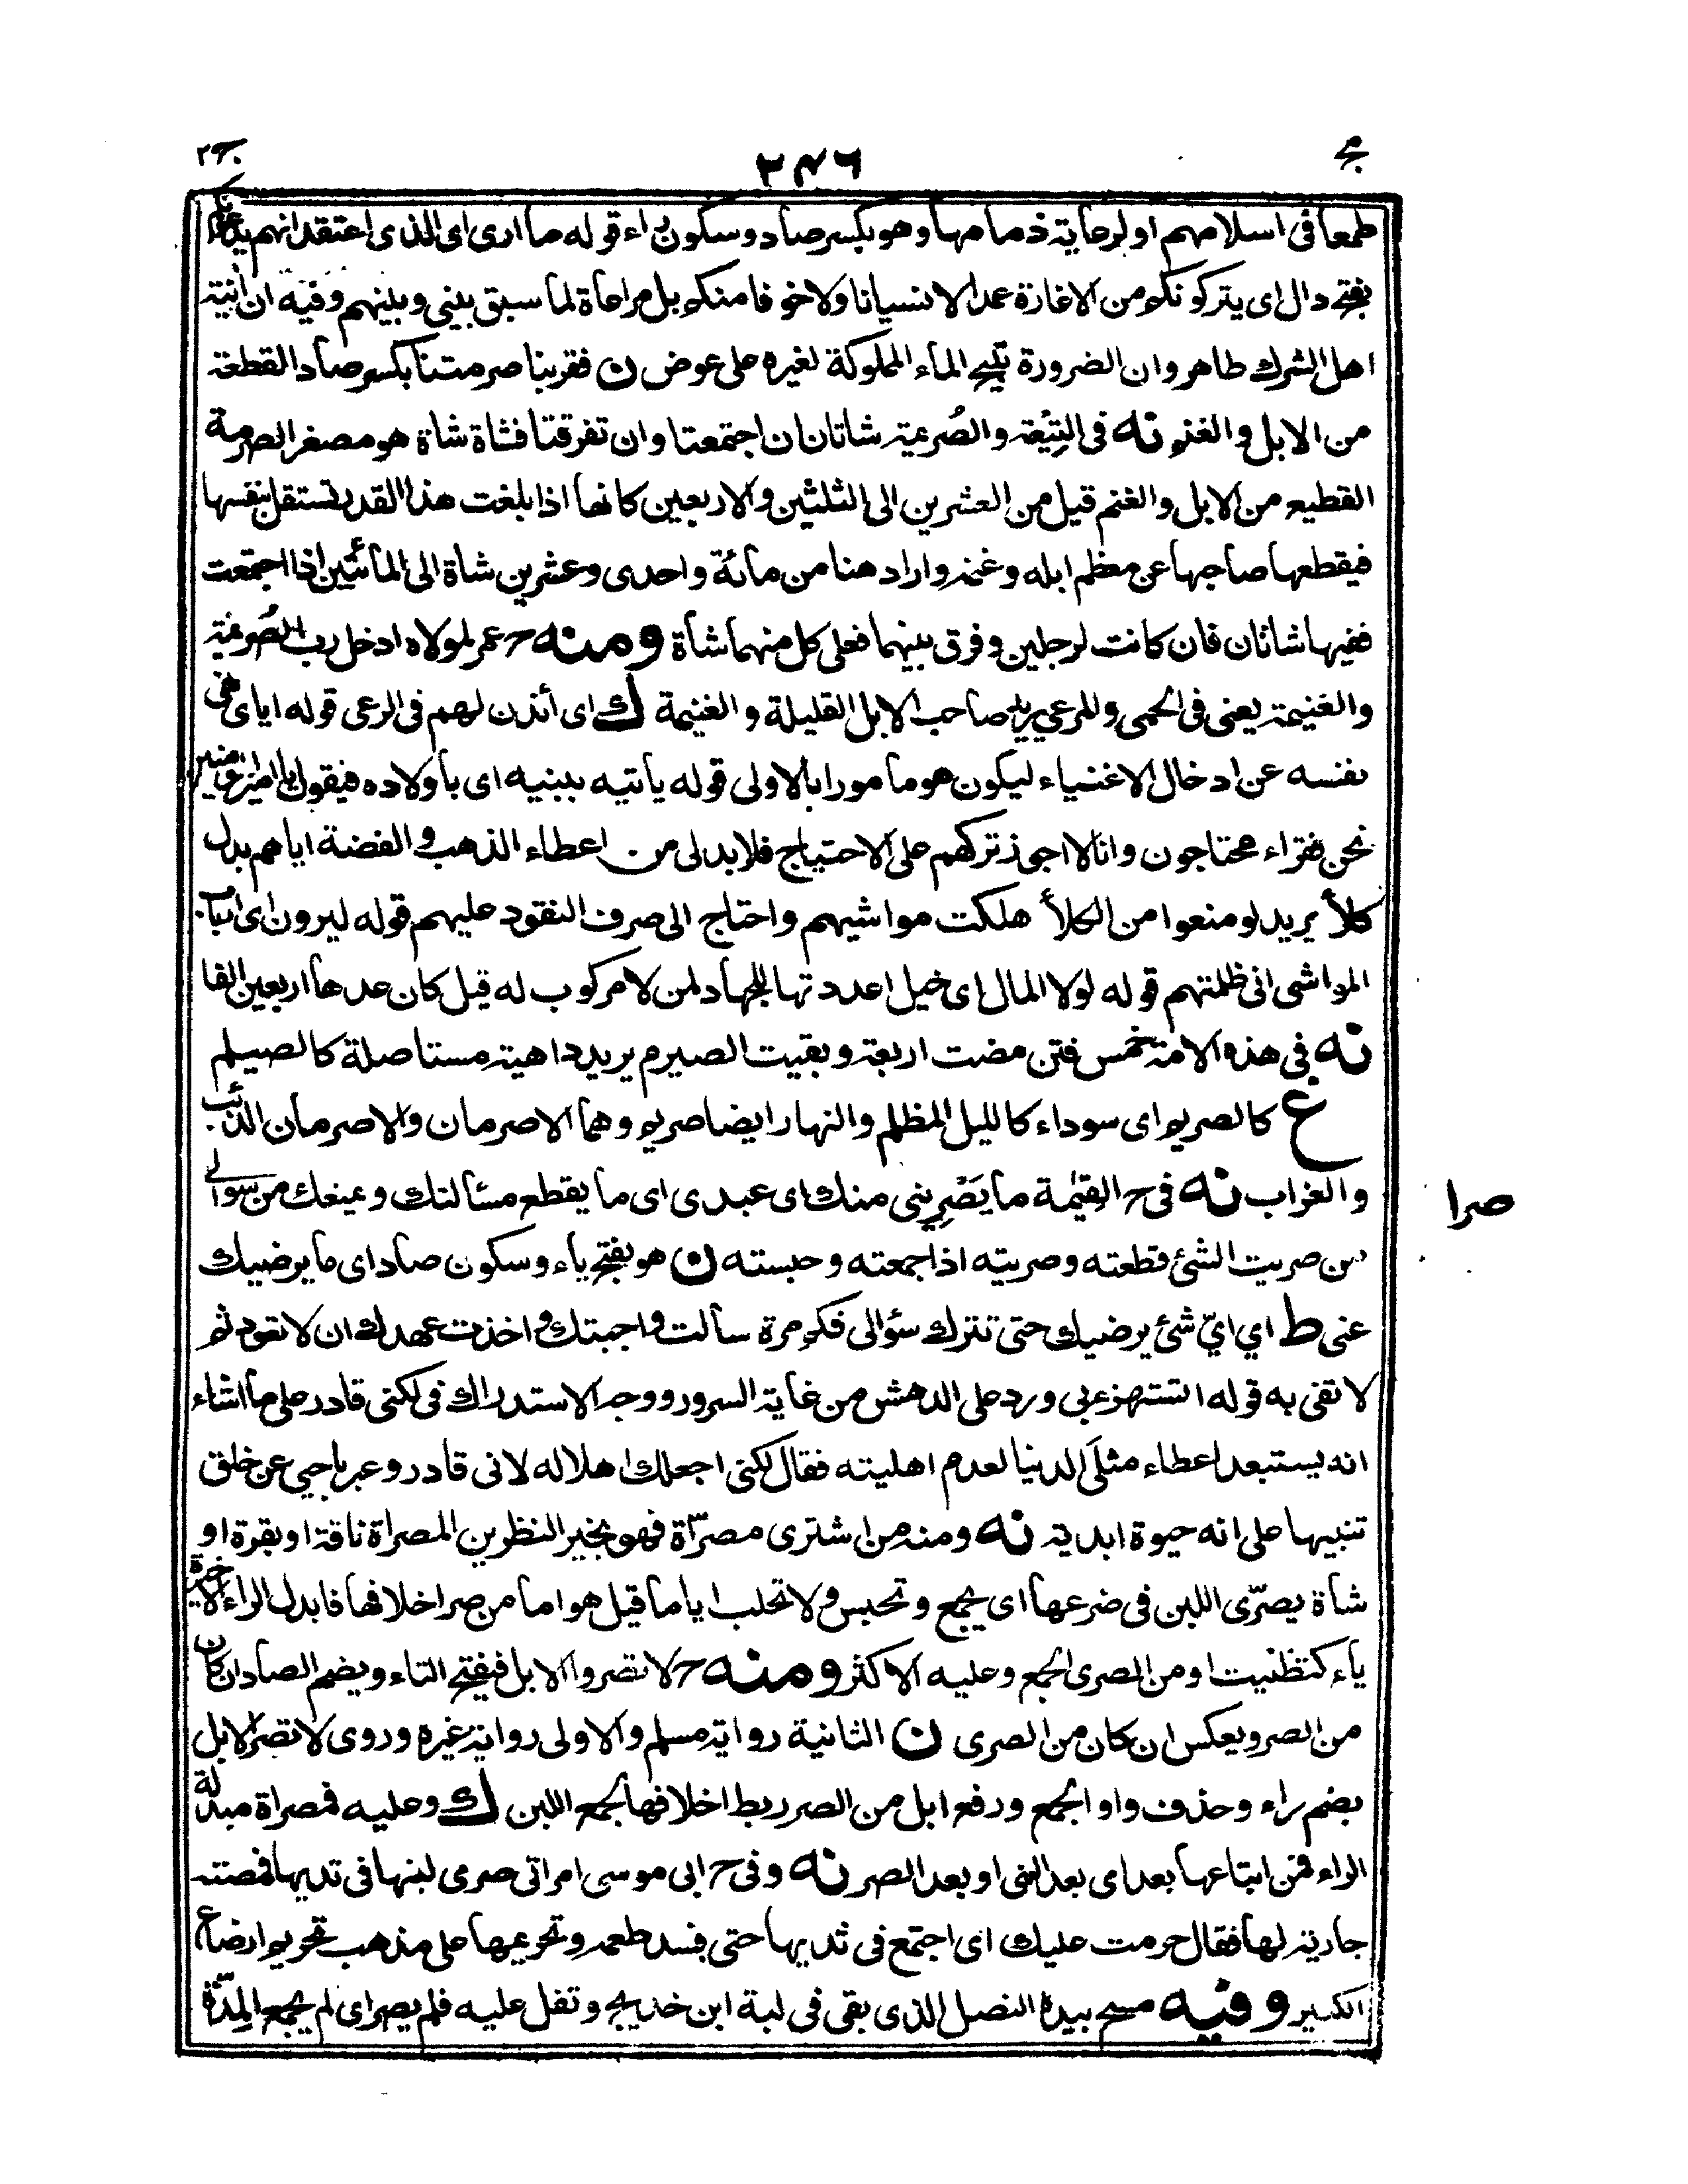 ٢٤٦
طمعا فى اسلامهم او لرعاية ذمامها وهو بكسر صاد وسكون راء قوله ما ارى اى الذى اعتقد انهم يدعونكم
بفتح دال اى يتركونكم من الاغارة عمدا لا نسيانا ولا خوفا منكم بل مراعاة لما سبق بينى وبينهم وفيه ان انية
اهل الشرك طاهر وان الضرورة تبيح الماء المملوكة لغيره على عوض ن فقربنا صرمتنا بكسر صاد القطعة
من الابل والغنم نه فى التِيْعَة والصُريمة شاتان ان اجتمعتا وان تفرقتا فشاة شاة هو مصغر الصرمة
القطيع من الابل والغنم قيل من العشرين الى الثلثين والاربعين كانها اذا بلغت هذا القدر تستقل بنفسها
فيقطعها صاحبها عن معظم ابله وغنمه واراد هنا من مائة واحدى وعشرين شاة الى المأتين اذا اجتمعت
ففيها شاتان فان كانت لرجلين وفرق بينهما فعلى كل منهما شاة ومنه ح عمر لمولاه ادخل رب الصُريمة
والغنيمة يعنى فى الحمى والمرعى يريد صاحب الابل القليلة والغنيمة ك اى أئذن لهم فى الرعى قوله اياى نهى
نفسه عن ادخال الاغنياء ليكون هو مامورا بالاولى قوله يأتيه ببنيه اى باولاده فيقول يا امير المؤمنين
نحن فقراء محتاجون وانا لا اجوز تركهم على الاحتياج فلابد لى من اعطاء الذهب والفضة اياهم بدل
كلأ يريد لو منعوا من الكلأ هلكت مواشيهم واحتاج الى صرف النقود عليهم قوله ليرون اى ارباب
المواشى انى ظلمتهم قوله لولا المال اى خيل اعددتها للجهاد لمن لا مركوب له قيل كان عدها اربعين الفا
نه فى هذه الامة خمس فتن مضت اربعة وبقيت الصيرم يريد داهية مستاصلة كالصيلم
غ كالصريم اى سوداء كالليل المظلم والنهار ايضا صريم وهما الاصرمان والاصرمان الذئب
والغراب نه فى ح القيٰمة ما يَصْرِينى منك اى عبدى اى ما يقطع مسألتك ويمنعك من سوالى
صرا
من صريت الشئ قطعته وصريته اذا جمعته وحبسته ن هو بفتح ياء وسكون صاد اى ما يرضيك
عنى ط اي ايّ شئ يرضيك حتى تترك سؤالى فكم مرة سألت واجبتك واخذت عهدك ان لا تعود ثم
لا تفى به قوله اتستهزء بى ورد على الدهش من غاية السرور ووجه الاستدراك فى لكنى قادر على ما اشاء
انه يستبعد اعطاء مثلَى الدنيا لعدم اهليته فقال لكنى اجعلك اهلا له لانى قادر وعبر باحيى عن خلق
تنبيها على انه حيوة ابدية نه ومنه من اشترى مصرّاة فهو بخير النظرين المصراة ناقة او بقرة او
شاة يصرّى اللبن فى ضرعها اى يجمع وتحبس ولا تحلب اياما قيل هو اما من صر اخلافها فابدل الراء الاخيرة
ياء كتظنيت او من الصرى الجمع وعليه الاكثر ومنه ح لا تصروا الابل فيفتح التاء ويضم الصاد ان كان
من الصر ويعكس ان كان من الصرى ن الثانية رواية مسلم والاولى رواية غيره وروى لا تصر الابل
بضم راء وحذف واو الجمع ورفع ابل من الصر ربط اخلافها لجمع اللبن ك وعليه فمصراة مبدلة
الراء فمن ابتاعها بعد اى بعد النهى او بعد الصر نه وفى ح ابى موسى امراتى صرى لبنها فى ثديها فمصته
جارية لها فقال حرمت عليك اى اجتمع فى ثديها حتى فسد طعمه وتحريمها على مذهب تحريم ارضاع
الكبير وفيه مسح بيده النصل الذى بقى فى لبة ابن خديج وتفل عليه فلم يصر اى لم يجمع المِدّة